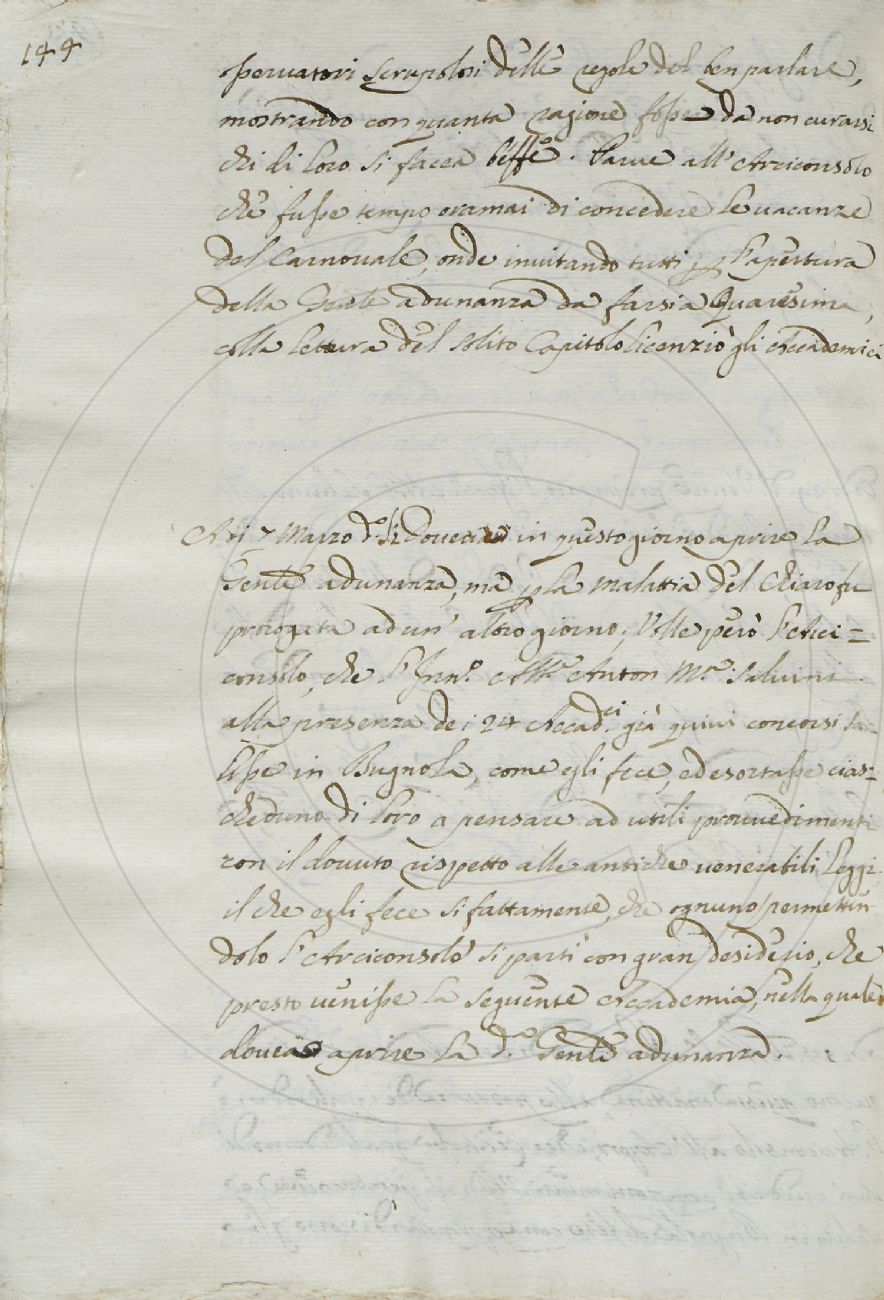 144
sservatori scrupolosi delle regole del ben parlare,
mostrando con quanta ragione fosse da non curarsi
chi di loro si facea beffe. Parve all' Arciconsolo
che fusse tempo oramai di concedere le vacanze
del Carnovale, onde invitando tutti p l'apertura
della Genle adunanza da farsi a Quaresima,
colla lettura del solito Capitolo licenziò gli Accademici
A dì 7 Marzo do si dovea in questo giorno aprire la
Genle adunanza, ma p la malattia del Chiaro fu
prorogata ad un' altro giorno; Volle però l'Arci=
consolo, che l' Innº Abe Anton Mª Salvini
alla presenza dei 24 Accadci già quivi concorsi sa=
lisse in Bugnola, come egli fece, ed esortasse cias=
cheduno di loro a pensare ad utili provvedimenti
con il dovuto rispetto alle antiche venerabili Leggi,
il che egli fece sì fattamente, che ognuno permetten
dolo l' Arciconsolo si partì con gran desiderio, che
presto venisse la seguente Accademia, nella quale
dovea aprire la dª Genle adunanza.